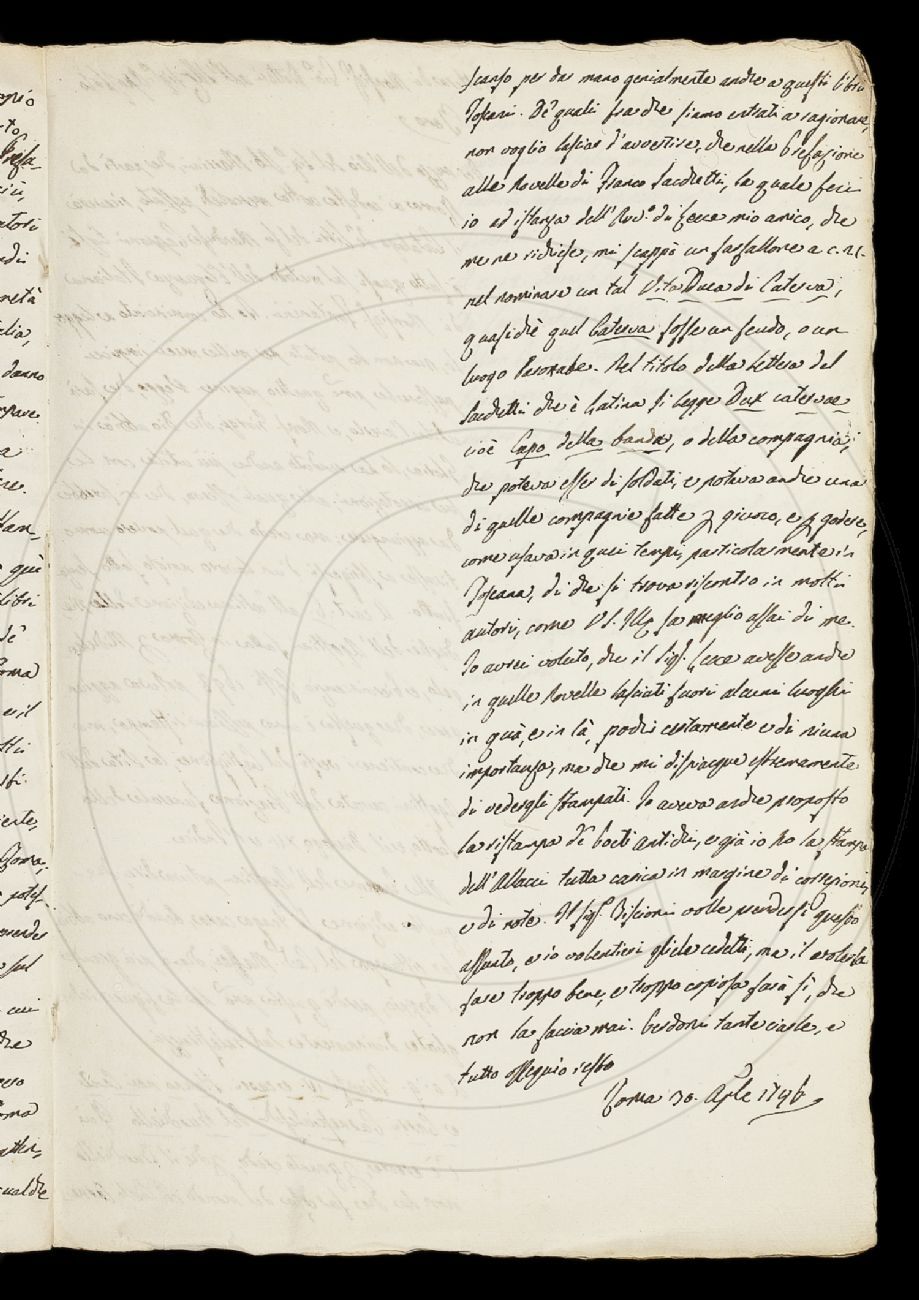 scanso per dar mano genialmente anche a questi libri
Toscani. De' quali fra che siamo entrati a ragionare,
non voglio lasciar d'avvertire, che nella Prefazione
alle Novelle di Franco Sacchetti, la quale feci
io ad istanza dell' di Lecce mio amico, che
me ne richiese, mi scappò un farfallone a c. 21.
nel nominare un tal Vita Duca di Caterva,
quasi chè quel Caterva fosse un feudo, o un
luogo Nel titolo della lettera del
Sacchetti che è Latina si legge Dux catervae
cioè Capo della banda, o della compagnia,
che poteva esser di soldati, e poteva anche una
di quelle compagnie fatte p giuoco, e p godere,
come usava in quei tempi, particolarmente in
Toscana, di che si trova riscontro in molti
autori, come VS. Illa sa meglio assai di me.
Io avrei voluto, che il Sigr. Lecce avesse anche
in quelle Novelle lasciati fuori alcuni luoghi
in quà, e in là, pochi certamente e di niuna
importanza, ma che mi dispiacque estremamente
di vedergli stampati. Io aveva anche proposto
la ristampa de' Poeti antichi, e già io ho la stampa
dell'Allacci tutta carica in margine di correzioni,
e di note. Il Sigr. Biscioni volle prendersi questo
assunto, e io volentieri gliele cedetti, ma il volerla
fare troppo bene, e troppo copiosa farà sì, che
non la faccia mai. Perdoni tante ciarle, e
tutto ossequio resto
Roma 30. Aple 1746
egio
to
Prefa-
atori
netà
alia,
danno
mpare
a
què
libri
de'
Roma
e il
iente,
Roma,
prender
sul
cui
che
oma